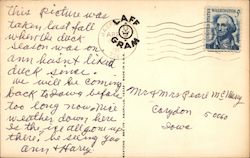 This picture was
taken last fall
when the duck
season was on
ann hasn't liked
duck since.
we will be coming
back to Iowa before
too long now, nice
weather down here.
Is the ice all gone up
there, be seeing you
Ann & Harry
LAFF
GRAM
Mr & Mrs Pearl
Corydon 50060
Iowa